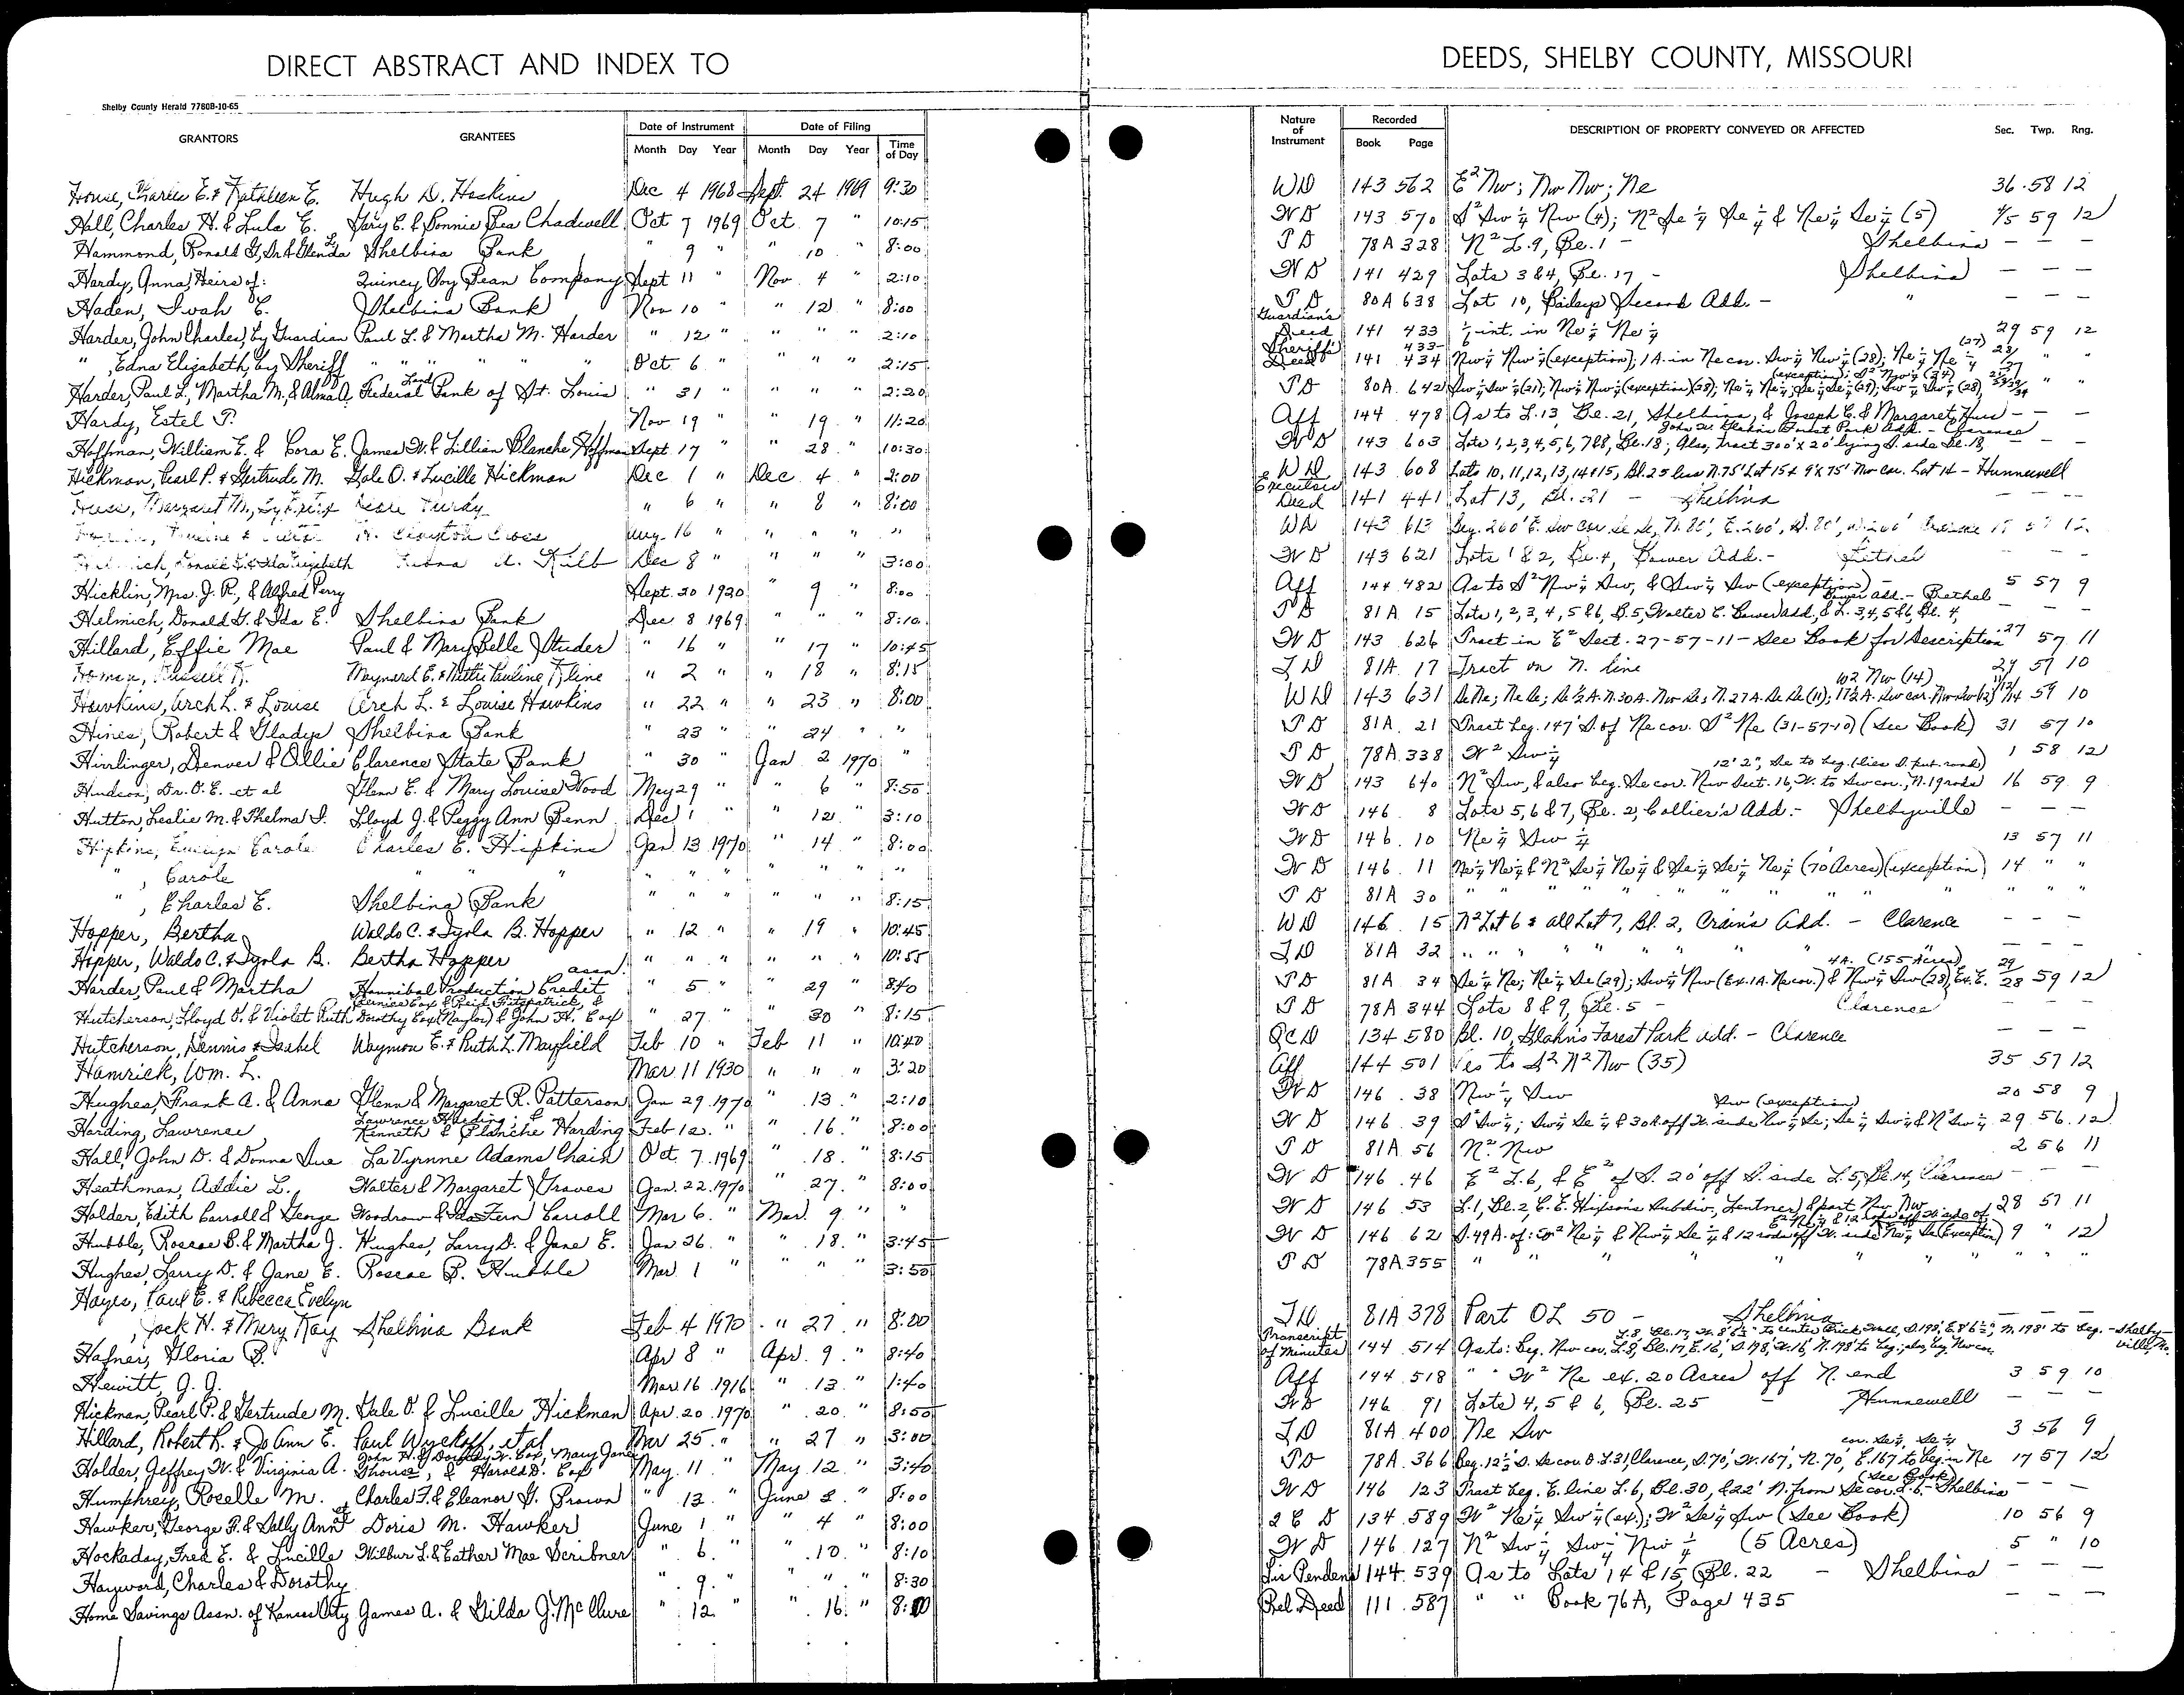 DIRECT ABSTRACT AND INDEX TO
DEEDS, SHELBY COUNTY, MISSOURI
Shelby County Herald 7780B-10-65
GRANTORS GRANTEES Date of Instrument Month Day Year Date of Filing Month Day Year Time of Day
Nature of Instrument Recorded Book Page DESCRIPTION OF PROPERTY CONVEYED OR AFFECTED Sec. Twp. Rng.
House, Charles E. & Kathleen E. Hugh D. Hoskins Dec 4 1968 Sept. 24 1969 9:30 WD 143 562 E² Nw; Nw Nw; Ne 36 58 12
Hall, Charles H. & Lula E. Gary E. & Bonnie Bea Chadwell Oct 7 1969 Oct. 7 " 10:15 WD 143 570 S² Sw ¼ Nw (4); N² Se ¼ Se ¼ & Ne ¼ Se ¼ (5) 4/5 59 12
Hammond, Ronald G, Sr. & Glenda L. Shelbina Bank " 9 " " 10 " 8:00 TD 78A 328 N² L.9, Bl. 1 - Shelbina — — —
Hardy, Anna, Heirs of: Quincy Soy Bean Company Sept 11 " Nov. 4 " 2:10 WD 141 429 Lots 3 & 4, Bl. 17 - Shelbina — — —
Haden, Iwah E. Shelbina Bank Nov 10 " " 12 " 8:00 TD 80A 638 Lot 10, Baileys Second Add. - " — — —
Harder, John Charles, by Guardian Paul L. & Martha M. Harder " 12 " " " " 2:10 Guardian's Deed 141 433 int. in Ne ¼ Ne ¼ 29 59 12
" , Edna Elizabeth, by Sheriff " " " " Oct 6 " " " " 2:15 Sheriff's Deed 141 433-434 Nw ¼ Nw ¼ (exception); 1A. in Ne cor. Sw ¼ Nw ¼ (28); Ne ¼ Ne ¼ (27) " "
Harder, Paul L., Martha M., & Alma A. Federal Land Bank of St. Louis " 31 " " " " 2:20 TD 80A 642 Sw ¼ Sw ¼ (21); Nw ¼ Nw ¼ (exception)(28); " "
Hardy, Estel T. Nov 19 " " 19 " 11:20 Aff 144 478 As to L.13, Bl. 21, Shelbina, & Joseph E. & Margaret Huss — — —
Hoffman, William E. & Cora E. James W. & Lillian Blanche Hoffman Sept 17 " " 28 " 10:30 WD 143 603 Lots 1,2,3,4,5,6,7&8, Bl.18; Also, Tract 300' x 20' lying S. side Bl.18, Forest Park Add. - Clarence — — —
Hickman, Pearl P. & Gertrude M. Gale O. & Lucille Hickman Dec 1 " Dec. 4 " 2:00 WD 143 608 Lots 10,11,12,13,14&15, Bl.25 less N.75' Lot 15 & 9'x75' Nw cor. Lot 14 - Hunnewell
Huss, Margaret M., by Purdy " 6 " " 8 " 8:00 Executors Deed 141 441 Lot 13, Bl. 21 - Shelbina — — —
Aug. 16 " " " " " WD 143 613 Beg. 260' E. Sw cor Se Se, N. 80', E. 260', S. 80', W. 260' 57 12
Helmich, Donald & Ida Elizabeth Dec 8 " " " " 3:00 WD 143 621 Lots 1 & 2, Bl. 4, Bower Add. - Bethel — —
Hicklin, Mrs. J. R., & Alfred Perry Sept. 20 1920 " 9 " 8:00 Aff 144 482 As to S² Nw ¼ Sw, & Sw ¼ Sw (exception) - 5 57 9
Helmich, Donald G. & Ida E. Shelbina Bank Dec 8 1969 " " " 8:10 TD 81A 15 Lots 1,2,3,4,5&6, B.5, Walter C. Bower add, & L. 3,4,5&6, Bl. 4, Bower add. - Bethel — — —
Hillard, Effie Mae Paul & Mary Belle Studer " 16 " " 17 " 10:45 WD 143 626 Tract in E² Sect. 27-57-11 - See Book for Description 27 57 11
Homan, Russell Maynard E. & Nettie Pauline Kline " 2 " " 18 " 8:15 TD 81A 17 Tract on N. line 24 57 10
Hawkins, Arch L. & Louise Arch L. & Louise Hawkins " 22 " " 23 " 8:00 WD 143 631 Se Ne; Ne Se; N.30A. Nw Se; N.27A. Se Se (11); W2 Nw (14) 59 10
Hines, Robert & Gladys Shelbina Bank " 23 " " 24 " " TD 81A 21 Tract beg. 147' S. of Ne cor. S² Ne (31-57-10) (See Book) 31 57 10
Hirrlinger, Denver & Ollie Clarence State Bank " 30 " Jan 2 1970 " TD 78A 338 W² Sw ¼ 1 58 12
Hudson, Dr. O.E. et al Glenn E. & Mary Louise Wood May 29 " " 6 " 8:50 WD 143 640 N² Sw, & also beg. Se cor. Nw Sect. 16, W. to Sw cor., N. 19 rods 12' 2", Se to beg. (lies S. put. road) 16 59 9
Hutton, Leslie M. & Thelma I. Lloyd J. & Peggy Ann Penn Dec 1 " " 12 " 3:10 WD 146 8 Lots 5,6 & 7, Bl. 2, Collier's Add. - Shelbyville — — —
Hipkins, Carole Charles E. Hipkins Jan 13 1970 " 14 " 8:00 WD 146 10 Ne ¼ Sw ¼ 13 57 11
" , Carole " " " " " " " " " " WD 146 11 Ne ¼ Ne ¼ & N² Se ¼ Ne ¼ & Se ¼ Se ¼ Ne ¼ (70 Acres)(exception) 14 " "
" , Charles E. Shelbina Bank " " " " " " 8:15 TD 81A 30 " " " " " " " "
Hopper, Bertha Waldo C. & Iyola B. Hopper " 12 " " 19 " 10:45 WD 146 15 N² Lot 6 & all Lot 7, Bl. 2, Crain's Add. - Clarence — — —
Hopper, Waldo C. & Iyola B. Bertha Hopper " " " " " " 10:55 TD 81A 32 " " " " " " " — — —
Harder, Paul & Martha Hannibal Production Credit assn. " 5 " " 29 " 8:40 TD 81A 34 Se ¼ Ne; Ne ¼ Se (29); Sw ¼ Nw (Ex.1A. Ne cor.) & Nw ¼ Sw (28), Ex. E. 4A. (155 Acres) 29/28 59 12
Hutcherson, Lloyd O. & Violet Ruth Bernice Cox & Reid Fitzpatrick, & Dorothy Cox (Naylor) & John H. Cox " 27 " " 30 " 8:15 TD 78A 344 Lots 8 & 9, Bl. 5 - Clarence — — —
Hutcherson, Dennis & Isabel Waymon E. & Ruth L. Mayfield Feb 10 " Feb 11 " 10:40 QCD 134 580 Bl. 10, Glahn's Forest Park Add. - Clarence — — —
Hamrick, Wm. L. Mar 11 1930 " " " 3:20 Aff 144 501 As to S² N² Nw (35) 35 57 12
Hughes, Frank A. & Anna Glenn & Margaret R. Patterson Jan 29 1970 " 13 " 2:10 WD 146 38 Nw ¼ Sw 20 58 9
Harding, Lawrence Lawrence Harding; & Kenneth & Blanche Harding Feb 12 " " 16 " 8:00 WD 146 39 S² Sw ¼; Sw ¼ Se ¼ & 30A. off W. side Nw ¼ Se; Se ¼ Sw ¼ & N² Sw ¼ Sw (exception) 29 56 12
Hall, John D. & Donna Sue LaVynne Adams Chain Oct. 7 1969 " 18 " 8:15 TD 81A 56 N² Nw 2 56 11
Heathman, Addie L. Walter & Margaret Graves Jan. 22 1970 " 27 " 8:00 WD 146 46 E² L.6, & E² of S. 20' off S. side L.5, Bl.14, Clarence — — —
Holder, Edith Carroll & George Woodrow & Ida Fern Carroll Mar 6 " Mar. 9 " " WD 146 53 L.1, Bl.2, C.E. Hixson's Subdiv., Lentner, & part Nw Nw 28 57 11
Hubble, Roscoe B. & Martha J. Hughes, Larry D. & Jane E. Jan 26 " " 18 " 3:45 WD 146 62 S.49A. of: E² Ne ¼ & Nw ¼ Se ¼ & 12 rods off W. side Ne ¼ Se (exception) 9 " 12
Hughes, Larry D. & Jane E. Roscoe B. Hubble Mar 1 " " " " 3:50 TD 78A 355 " " " " " " "
Hayes, Paul E. & Rebecca Evelyn
, Jack H. & Mary Kay Shelbina Bank Feb 4 1970 " 27 " 8:00 TD 81A 378 Part OL 50 - Shelbina — — —
Hafner, Gloria B. Apr 8 " Apr. 9 " 8:40 Transcript of Minutes 144 514 As to: Beg. Nw cor. L.8, Bl.17, E.16', S.198', W.16', N.198' to beg.; also, beg. Nw cor. L.8, Bl.17, W. 8'6½" to center brick wall, S.198', E.8'6½", N. 198' to beg. - Shelbyville, Mo.
Hewitt, J. J. Mar 16 1916 " 13 " 1:40 Aff 144 518 " " W² Ne ex. 20 Acres off N. end 3 59 10
Hickman, Pearl P. & Gertrude M. Gale O. & Lucille Hickman Apr. 20 1970 " 20 " 8:50 WD 146 91 Lots 4, 5 & 6, Bl. 25 - Hunnewell — — —
Hillard, Robert R. & Jo Ann E. Paul Wyckoff, et al Mar 25 " " 27 " 3:00 TD 81A 400 Ne Sw 3 56 9
Holder, Jeffrey W. & Virginia A. John H. & Dorothy N. Cox, Mary Jane Shouse, & Harold D. Cox May 11 " May 12 " 3:40 TD 78A 366 Beg. 12½' S. Se cor. O.L.31, Clarence, S.70', W.167', N.70', E.167' to beg. in Ne cor. Se ¼, Se ¼ 17 57 12
Humphrey, Roselle M. Charles F. & Eleanor G. Brown " 13 " June 3 " 8:00 WD 146 123 Tract beg. E. line L.6, Bl.30, & 22' N. from Se cor. L.6. - Shelbina (See Book) — — —
Hawker, George F. & Sally Ann et Doris M. Hawker June 1 " " 4 " 8:00 QCD 134 589 W² Ne ¼ Sw ¼ (ex.); W² Se ¼ Sw (See Book) 10 56 9
Hockaday, Fred E. & Lucille Wilbur L. & Esther Mae Scribner " 6 " " 10 " 8:10 WD 146 127 N² Sw ¼ Sw ¼ Nw ¼ (5 Acres) 5 " 10
Hayward, Charles & Dorothy " 9 " " " " 8:30 Lis Pendens 144 539 As to Lots 14 & 15 Bl. 22 - Shelbina — — —
Home Savings Assn. of Kansas City James A. & Gilda J. McClure " 12 " " 16 " Rel Deed 111 587 " " Book 76A, Page 435 — — —